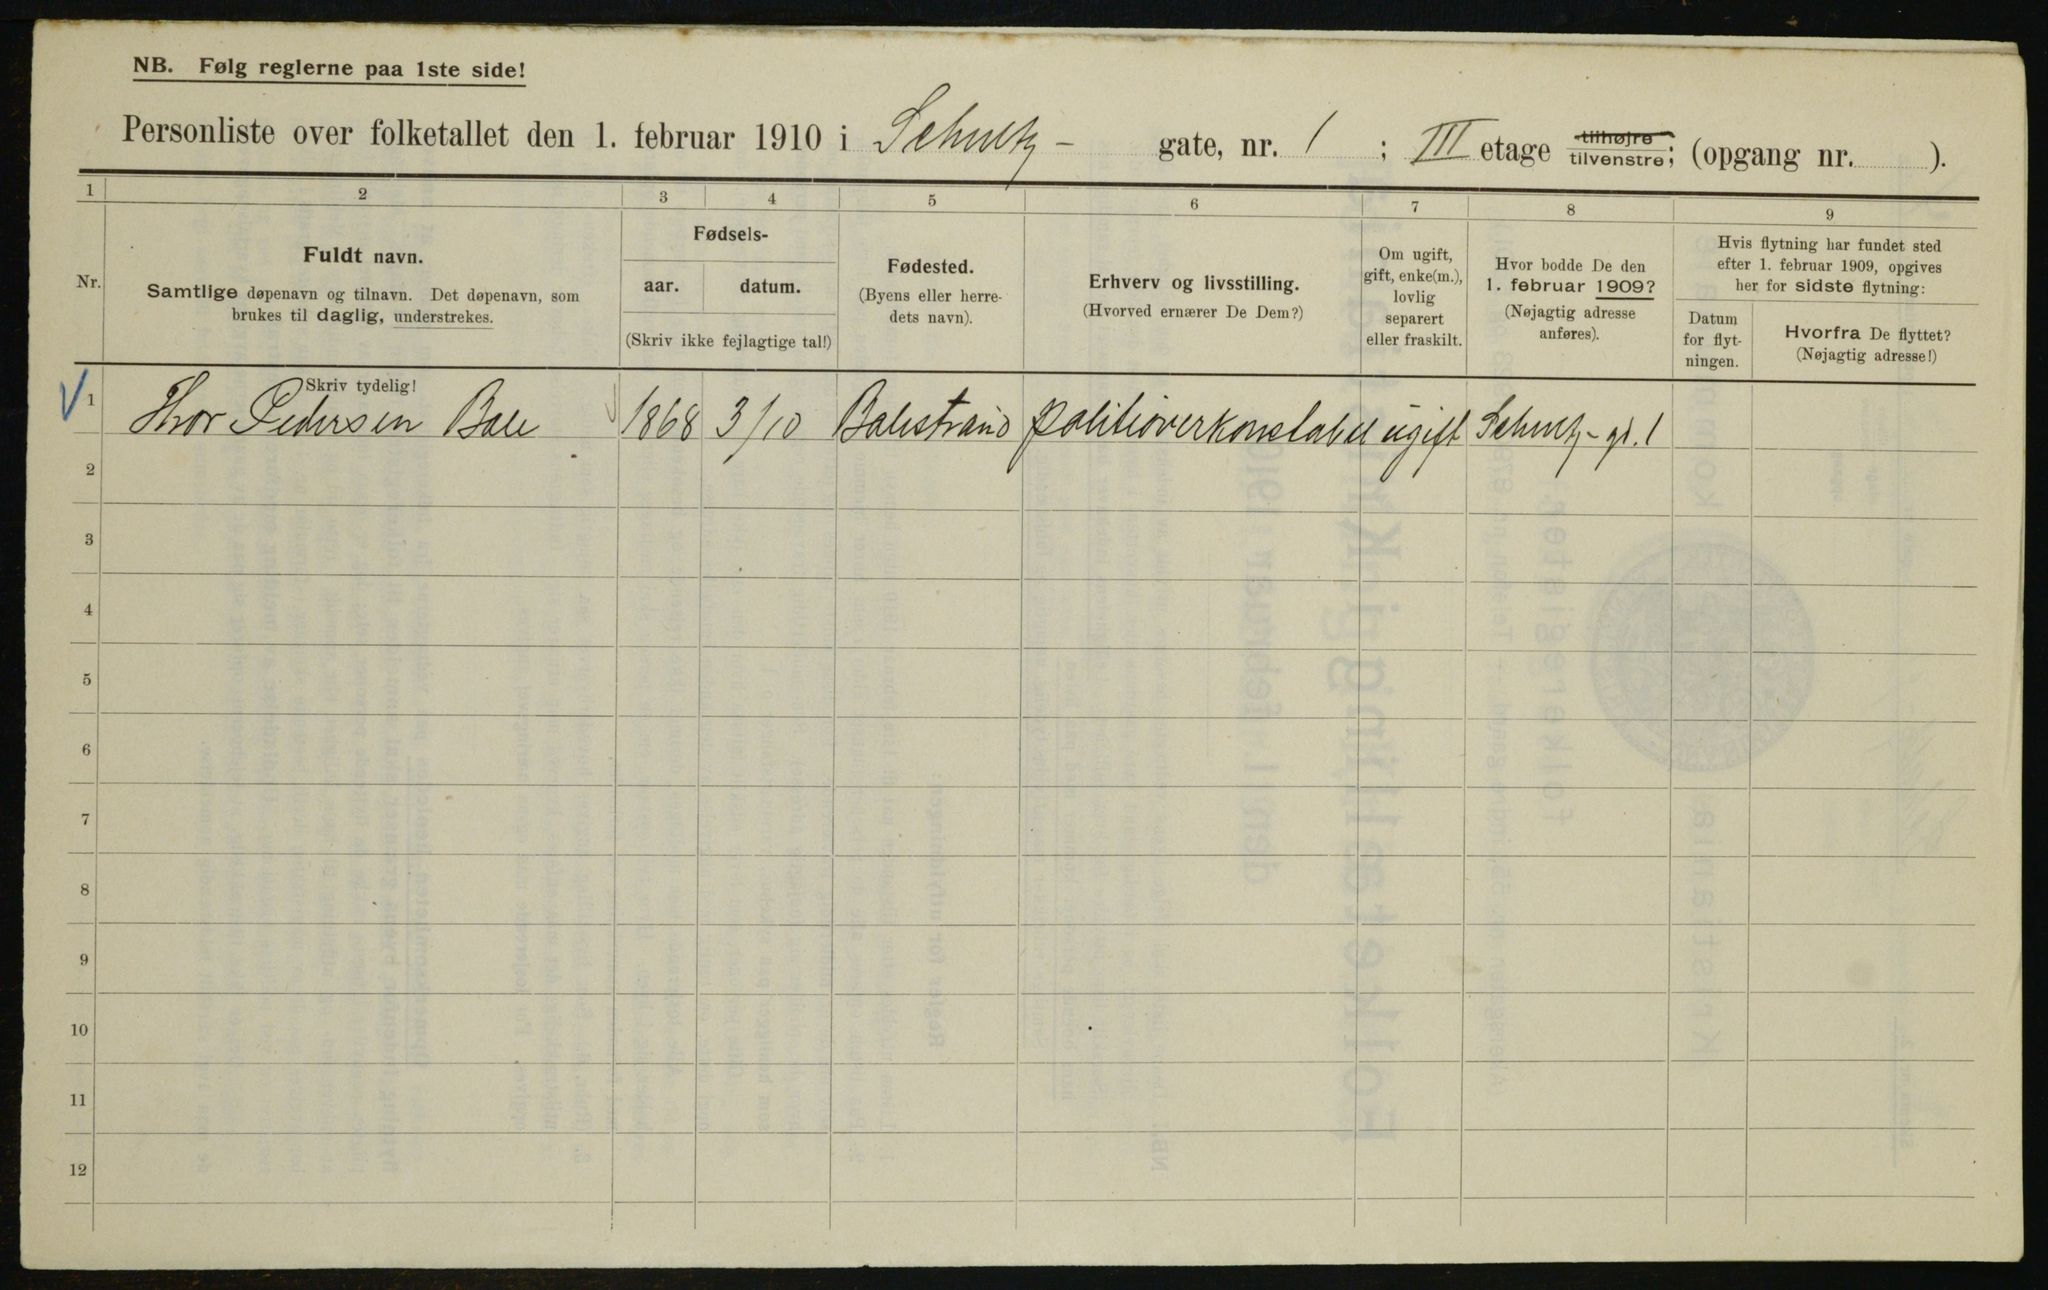 NB. Følg reglerne paa 1ste side!
Personliste over folketallet den 1. februar 1910 i Schultz- gate, nr. 1 ; III etage tilhøjre tilvenstre; (opgang nr. ).
1 2 3 4 5 6 7 8 9
Nr.
Fuldt navn.
Samtlige døpenavn og tilnavn. Det døpenavn, som
brukes til daglig, understrekes.
Fødsels-
aar. datum.
(Skriv ikke fejlagtige tal!)
Fødested.
(Byens eller herre-
dets navn).
Erhverv og livsstilling.
(Hvorved ernærer De Dem?)
Om ugift,
gift, enke(m.),
lovlig
separert
eller fraskilt.
Hvor bodde De den
1. februar 1909?
(Nøjagtig adresse
anføres).
Hvis flytning har fundet sted
efter 1. februar 1909, opgives
her for sidste flytning:
Datum
for flyt-
ningen.
Hvorfra De flyttet?
(Nøjagtig adresse!)
Skriv tydelig!
1 Thor Pedersen Bale 1868 3/10 Balestrand politioverkonstabel ugift Schultz-gt. 1
2
3
4
5
6
7
8
9
10
11
12